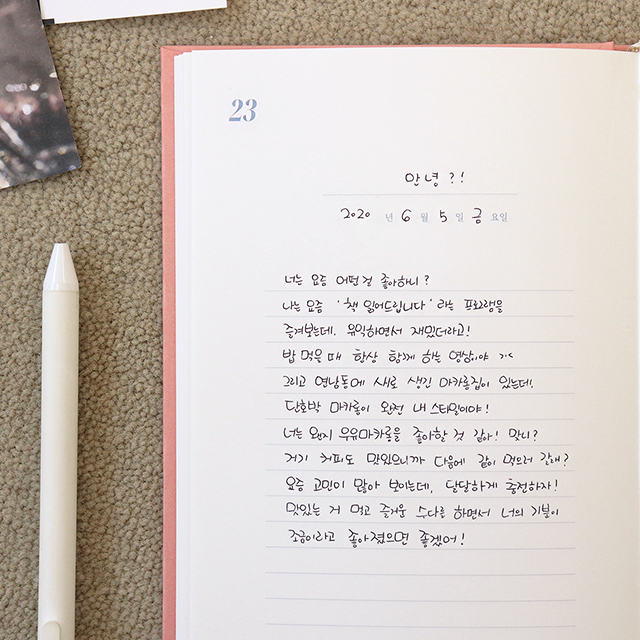 23
안녕?!
2020 년 6 월 5 일 금 요일
너는 요즘 어떤걸 좋아하니?
나는 요즘 '책 읽어드립니다'라는 프로그램을
즐겨보는데, 유익하면서 재밌더라고!
밥 먹을 때 항상 함께 하는 영상이야 >.<
그리고 연남동에 새로 생긴 마카롱집이 있는데,
단호박 마카롱이 완전 내 스타일이야!
너는 왠지 우유마카롱을 좋아할 것 같아! 맞니?
거기 커피도 맛있으니까 다음에 같이 먹으러 갈래?
요즘 고민이 많아 보이는데, 달달하게 충전하자!
맛있는 거 먹고 즐거운 수다를 하면서 너의 기분이
조금이라도 좋아졌으면 좋겠어!